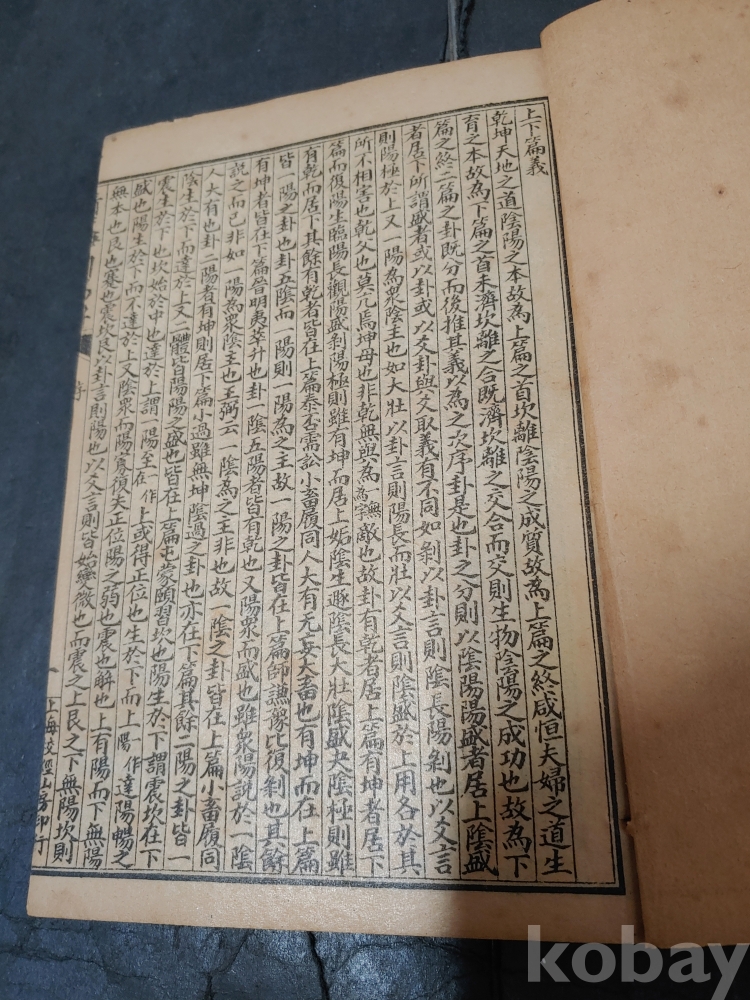 上下篇義
乾坤天地之道陰陽之本故為上篇之首坎離陰陽之成質故為上篇之終咸恒夫婦之道生
育之本故為下篇之首未濟坎離之合既濟坎離之交合而交則生物陰陽之成功也故為下
篇之終二篇之卦既分而後推其義以為之次序卦是也卦之分則以陰陽陽盛者居上陰盛
者居下所謂盛者或以卦或以爻卦與爻取義有不同如剝以卦言則陰長陽剝也以爻言
則陽極於上又一陽為眾陰主也如大壯以卦言則陽長而壯以爻言則陰盛於上用各於其
所不相害也乾父也莫亢焉坤母也非乾無與為無為字敵也故卦有乾者居上篇有坤者居下
篇而復陽生臨陽長觀陽盛剝陽極則雖有坤而居上姤陰生遯陰長大壯陰盛夬陰極則雖
有乾而居下其餘有乾者皆在上篇泰否需訟小畜履同人大有无妄大畜也有坤而在上篇
皆一陽之卦也卦五陰而一陽則一陽為之主故一陽之卦皆在上篇師謙豫比復剝也其餘
有坤者皆在下篇晉明夷萃升也卦一陰五陽者皆有乾也又陽眾而盛也雖眾陽說於一陰
說之而已非如一陽為眾陰主也王弼云一陰為之主非也故一陰之卦皆在上篇小畜履同
人大有也卦二陽者有坤則居下篇小過雖無坤陰過之卦也亦在下篇其餘二陽之卦皆一
陰生於下而達於上又二體皆陽陽之盛也皆在上篇屯蒙頤習坎也陽生於下謂震坎在下
震生於下也坎始於中也達於上謂一陽至在一作上或得正位也生於下而上一陽一作達陽暢之
盛也陽生於下而不達於上又陰眾而陽寡復失正位陽之弱也震也解也上有陽而下無陽
無本也艮也蹇也震坎艮以卦言則陽也以爻言則皆始變微也而震之上艮之下無陽坎則
序
一
上海校經山房印行
kobay